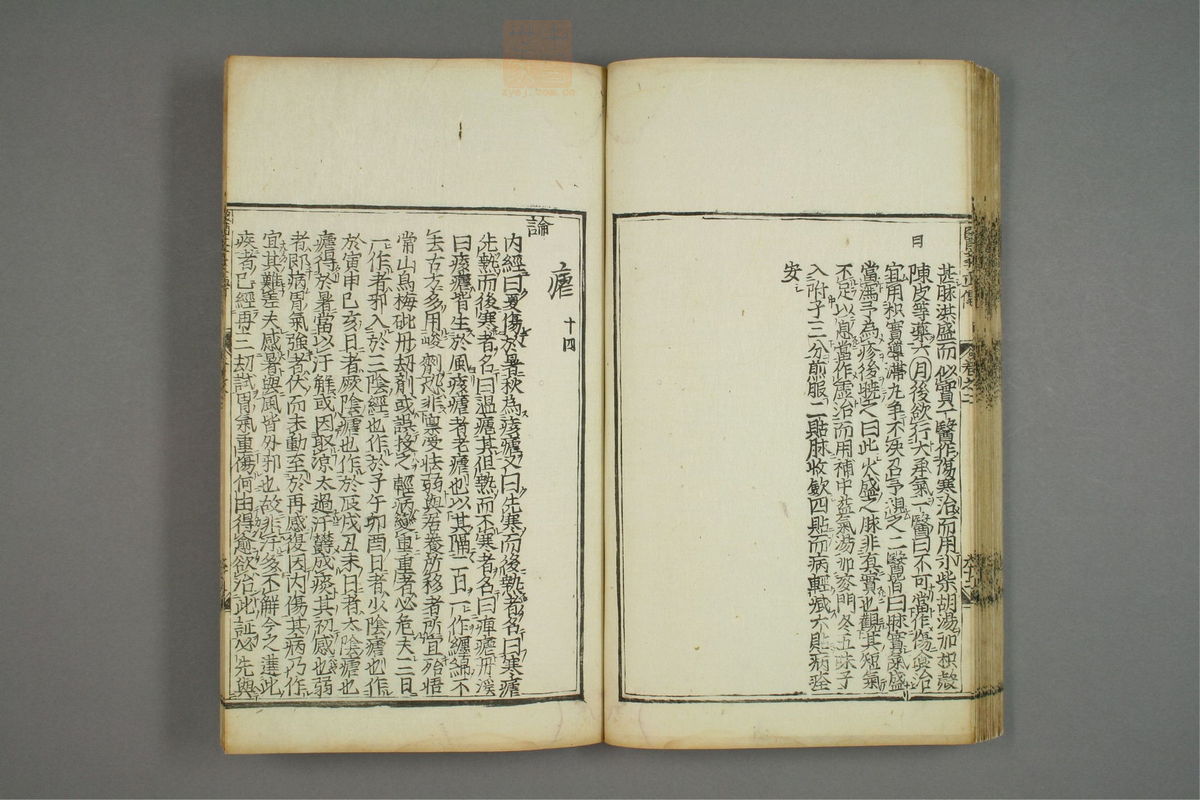 其脉洪盛而似實一醫作傷寒治而用小柴胡湯加枳殻
陳皮等藥六月後欲行大承氣一醫曰不可當作傷食治
宜用枳實導滯丸爭不决召予視之二醫皆曰脉實氣盛
當瀉予為疹後曉之曰此火盛之脉非有實也觀其短氣
不足以息當作虚治而用補中益氣湯加麥門冬五味子
入附子三分煎服二貼脉收歛四貼而病輕减六貼病痊
安
曰
瘧 十四
論
内經曰夏傷於暑秋為痎瘧又曰先寒而後熱者名曰寒瘧
先熱而後寒者名曰温瘧其但熱而不寒者名曰癉瘧丹溪
曰痎瘧皆生於風痎瘧者老瘧也以其隔二日一作纒綿不
去古方多用峻劑恐非禀受怯弱與居養所移者所宜殆悟
常山烏梅砒丹刼劑或誤投之輕病變重重者必危夫三日
一作者邪入於三陰經也作於子午卯酉日者少陰瘧也作
於寅申巳亥日者厥陰瘧也作於辰戌丑未日者太陰瘧也
瘧得於暑當以汗解或因取凉太過汗欝成痰其初感也弱
者即病胃氣強者伏而未動至於再感復因内傷其病乃作
宜其難差夫感暑與風皆外邪也故非汗多不解今之達此
疾者已經再三刼試胃氣重傷何由得愈欲治此証必先與
zysj.com.cn